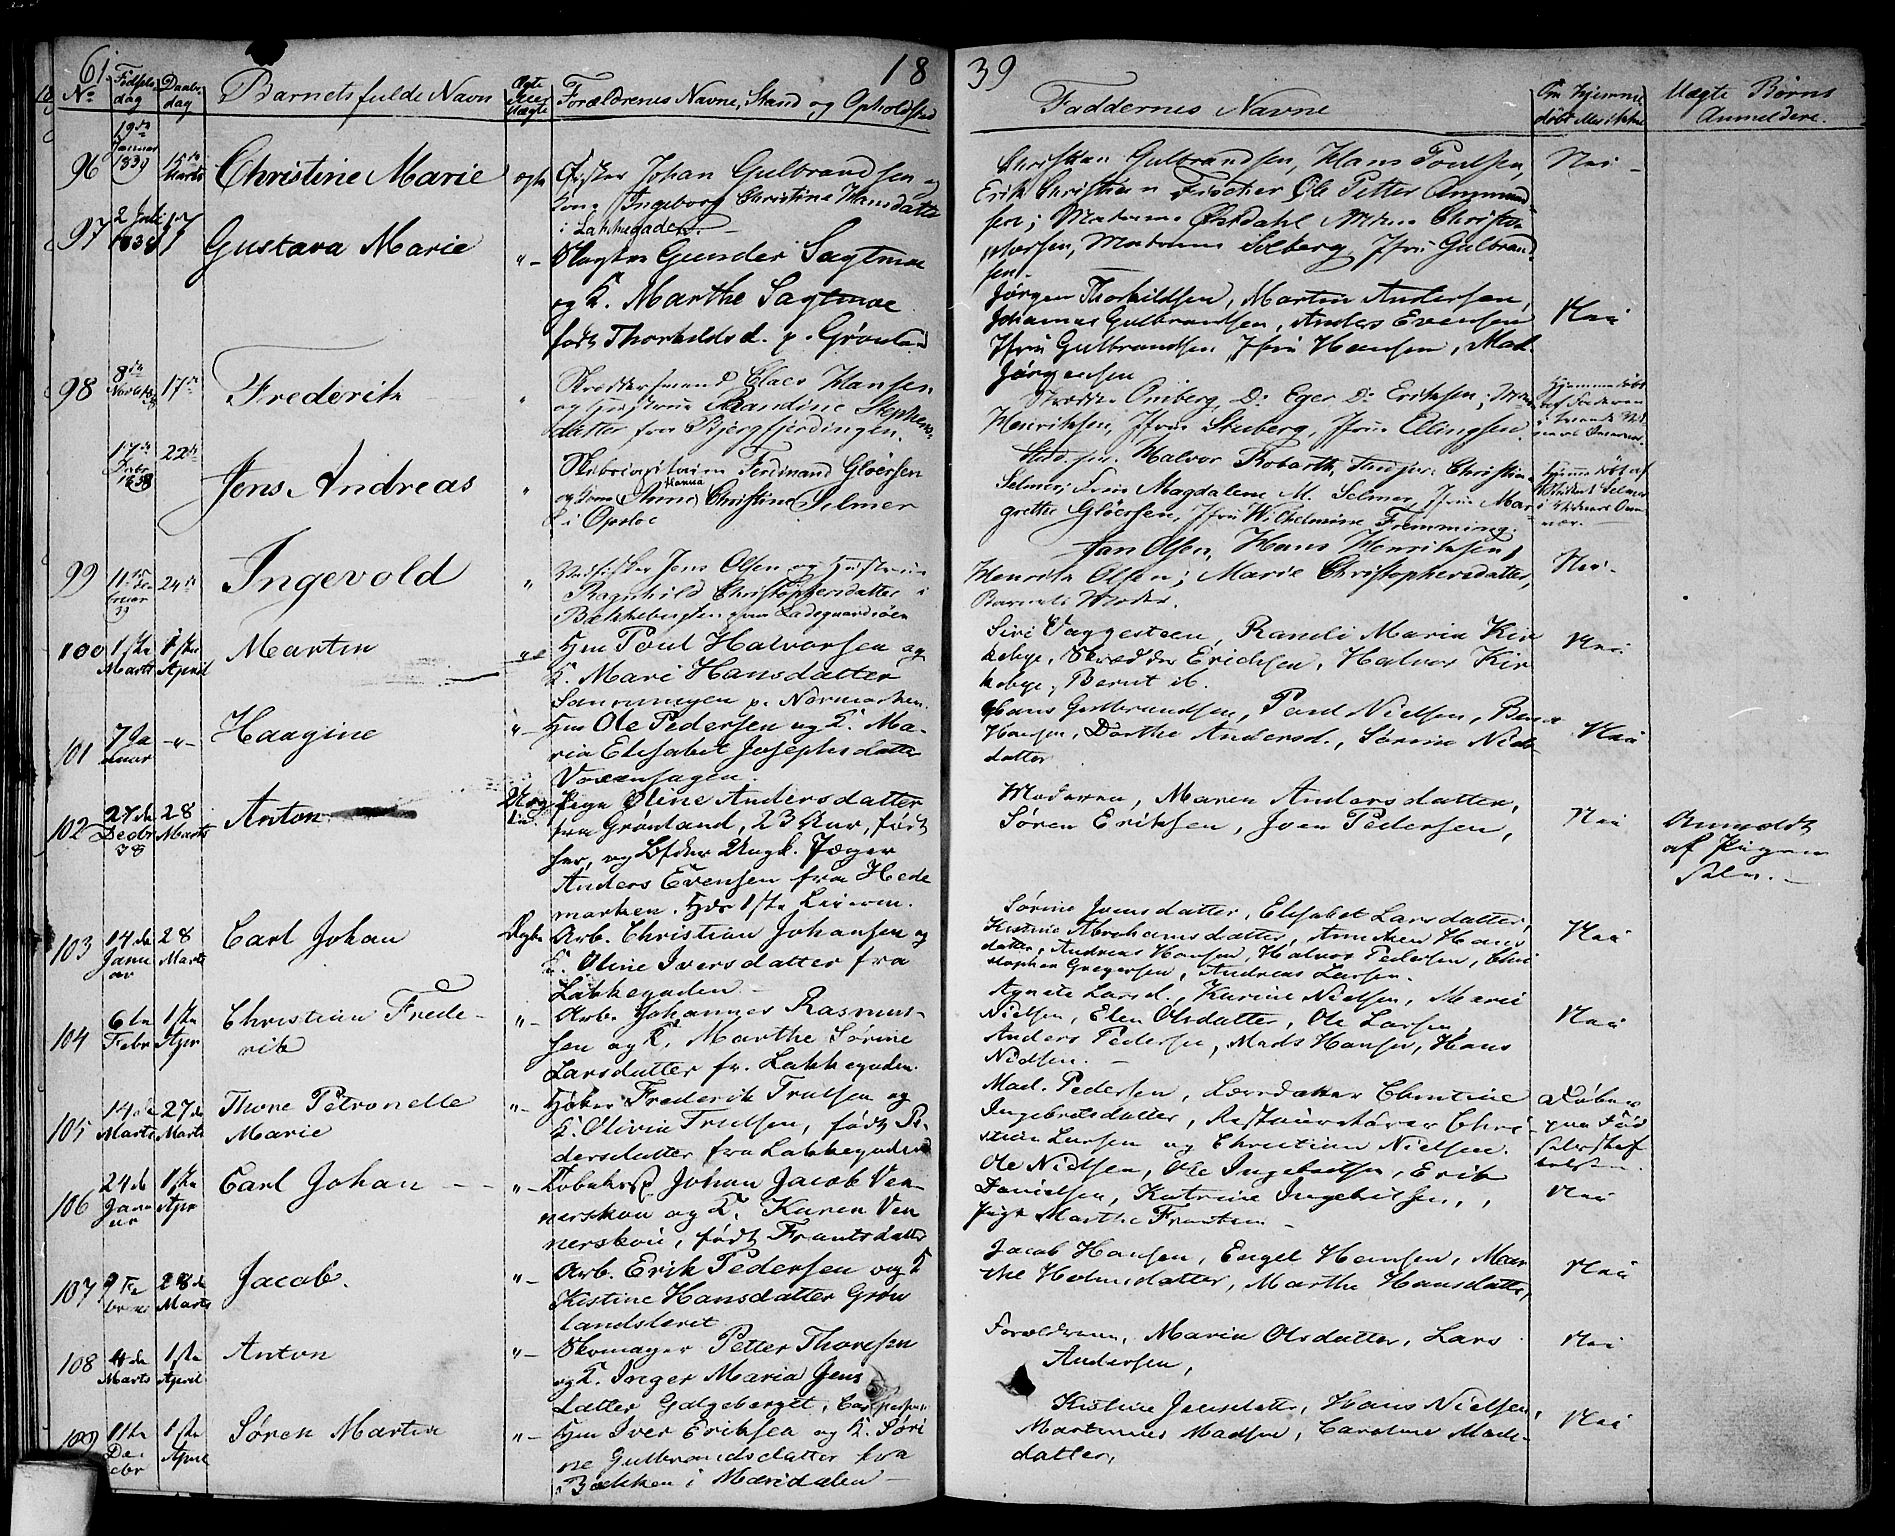 61. 18 39
No Fødsels- dag Daabs- dag Barnets fulde Navn Ægte eller Uægte Forældrenes Navne, Stand og Opholdsted Faddernes Navne Om hjemme- døbt Uægte Børns Anmeldere.
96 19de Januar 1839 15de Marts Christine Marie ægte Fisker Johan Gulbrandsen og
Kone Ingeborg Christine Hansdatter
i Lakkegaden.
Christian Gulbrandsen, Hans Poulsen,
Erik Christian Fischer Ole Petter Ammund-
sen; Madame Østdahl Christo-
phersen, Madame Solberg, Jfru Gulbrand-
sen.
Nei
97 2 Juli 1838 17 Gustava Marie "- Slagter Gunder Sagtmoe
og K. Marthe Sagtmoe
født Thorkildsd. p. Grønland
Jørgen Thorkildsen, Martin Andersen,
Johannes Gulbrandsen, Anders Evensen
Jfru Gulbrandsen, Jfru Hansen, Mad.
Jørgensen
Nei
98 8de 17de Frederik " Skreddersvend Claes Hansen
og Hustrue Randine Stephens-
datter fra Bjergfjerdingen.
D: Eger D: Eriksen,
Henriksen, Jfru Stuberg, Jfru Ellingsen.
Hjemmedøbt
af
17de Decbr 1838 22de Jens Andreas " Skibscapitain Ferdinand Gløersen
og Kone Anne Hanna Christine Selmer
i Opsloe
Halvor Robarth, Christian
Selmer, Frue Magdalene M. Selmer, Jfru Mar-
grethe Gløersen, Jfru Wilhelmine Flemming.
Hjemmedøbt af
Student Selmer
99 11te Februar 39 24de Ingevold " Jens Olsen og Hustrue
Ragnhild Christophersdatter i
Bækkebugten paa Ladegaardsøen
Jan Olsen, Hans Henriksen,
Henrik Olsen; Marie Christophersdatter,
Barnets Moder.
Nei.
100 1ste Marts 1ste April Martin Hm Poul Halvorsen og
K. Mari Hansdatter
p. Normarken.
Siri Vaggesteen, Randi Maria Kir-
kebye, Skrædder Erichsen, Halvor Kir-
kebye, Bernt ib.
Nei
101 7 Januar -"- Haagine "- Hm Ole Pedersen og K. Ma-
ria Elisabet Josephsdatter
Voxenhagen.
Hans Gulbrandsen, Poul Nielsen, Bernt
Hansen, Dorthe Andersd., Sørine Niels-
datter
Nei
102 27de Decbr 38 28 Marts Anton Uæg- Pige Oline Andersdatter
fra Grønland, 23 Aar, født
her, og Løfder Ungk. Jæger
Anders Evensen fra Hede
marken. Hds 1ste Leierm.
Moderen, Maren Andersdatter,
Søren Eriksen, Iver Pedersen,
Nei
Anmeldt
af Pigen
Selv.
103 14de Januar 28 Marts Carl Johan Ægte Arb. Christian Johansen og
K. Oline Iversdatter fra
Lakkegaden
Sørine Jensdatter, Elisabet Larsdatter,
Kistine Abrahamsdatter, Anniken Hans
datter, Andreas Hansen, Halvor Pedersen, Chri
stopher Gregersen, Andreas Larsen.
Nei
104 6te Febr 1ste Apr Christian Frede-
rik
"- Arb. Johannes Rasmus-
sen og K. Marthe Sørine
Larsdatter fr. Lakkegaden.
Agnete Larsd., Karine Nielsen, Marie
Nielsen, Elen Olsdatter, Ole Larsen,
Anders Pedersen, Mads Hansen, Hans
Nielsen.
Nei
105 14de Marts 27de Marts Thone Petronelle
Marie
"- Høker Frederik Trulsen og
K. Olivia Trulsen, født Pe-
dersdatter fra Lakkegaden
Mad. Pedersen, Christine
Ingebretsdatter, Restaurationær Chri-
stian Larsen og Christian Nielsen.
Døbes
paa Fød
selsstif
telsen.
106 24de Januar 1ste Apr Carl Johan "- Johan Jacob Ven-
nerskou og K. Karen Ven
nerskou, født Frantsdatter
Ole Nielsen, Ole Ingebretsen, Erik
Danielsen, Katrine Ingebretsen,
Pige Marthe Frantsen
Nei
107 9 Febr 28de Marts Jacob. "- Arb. Erik Pedersen og K
Kistine Hansdatter Grøn
landsleret
Jacob Hansen, Engel Hansen, Mar
the Holmsdatter, Marthe Hansdatter,
Nei
108 4de Marts 1ste April Anton "- Skomager Petter Thoresen
og K. Inger Maria Jens
datter Galgeberget,
Forældrene, Maria Olsdatter, Lars
Andersen,
Nei
109 11te Decbr 1ste April Søren Martin "- Hm Iver Eriksen og K. Søri
ne Gulbrandsdatter fra
Bækken i Maridalen
Kistine Jensdatter, Hans Nielsen,
Martinus Madsen, Caroline Mads-
datter,
Nei